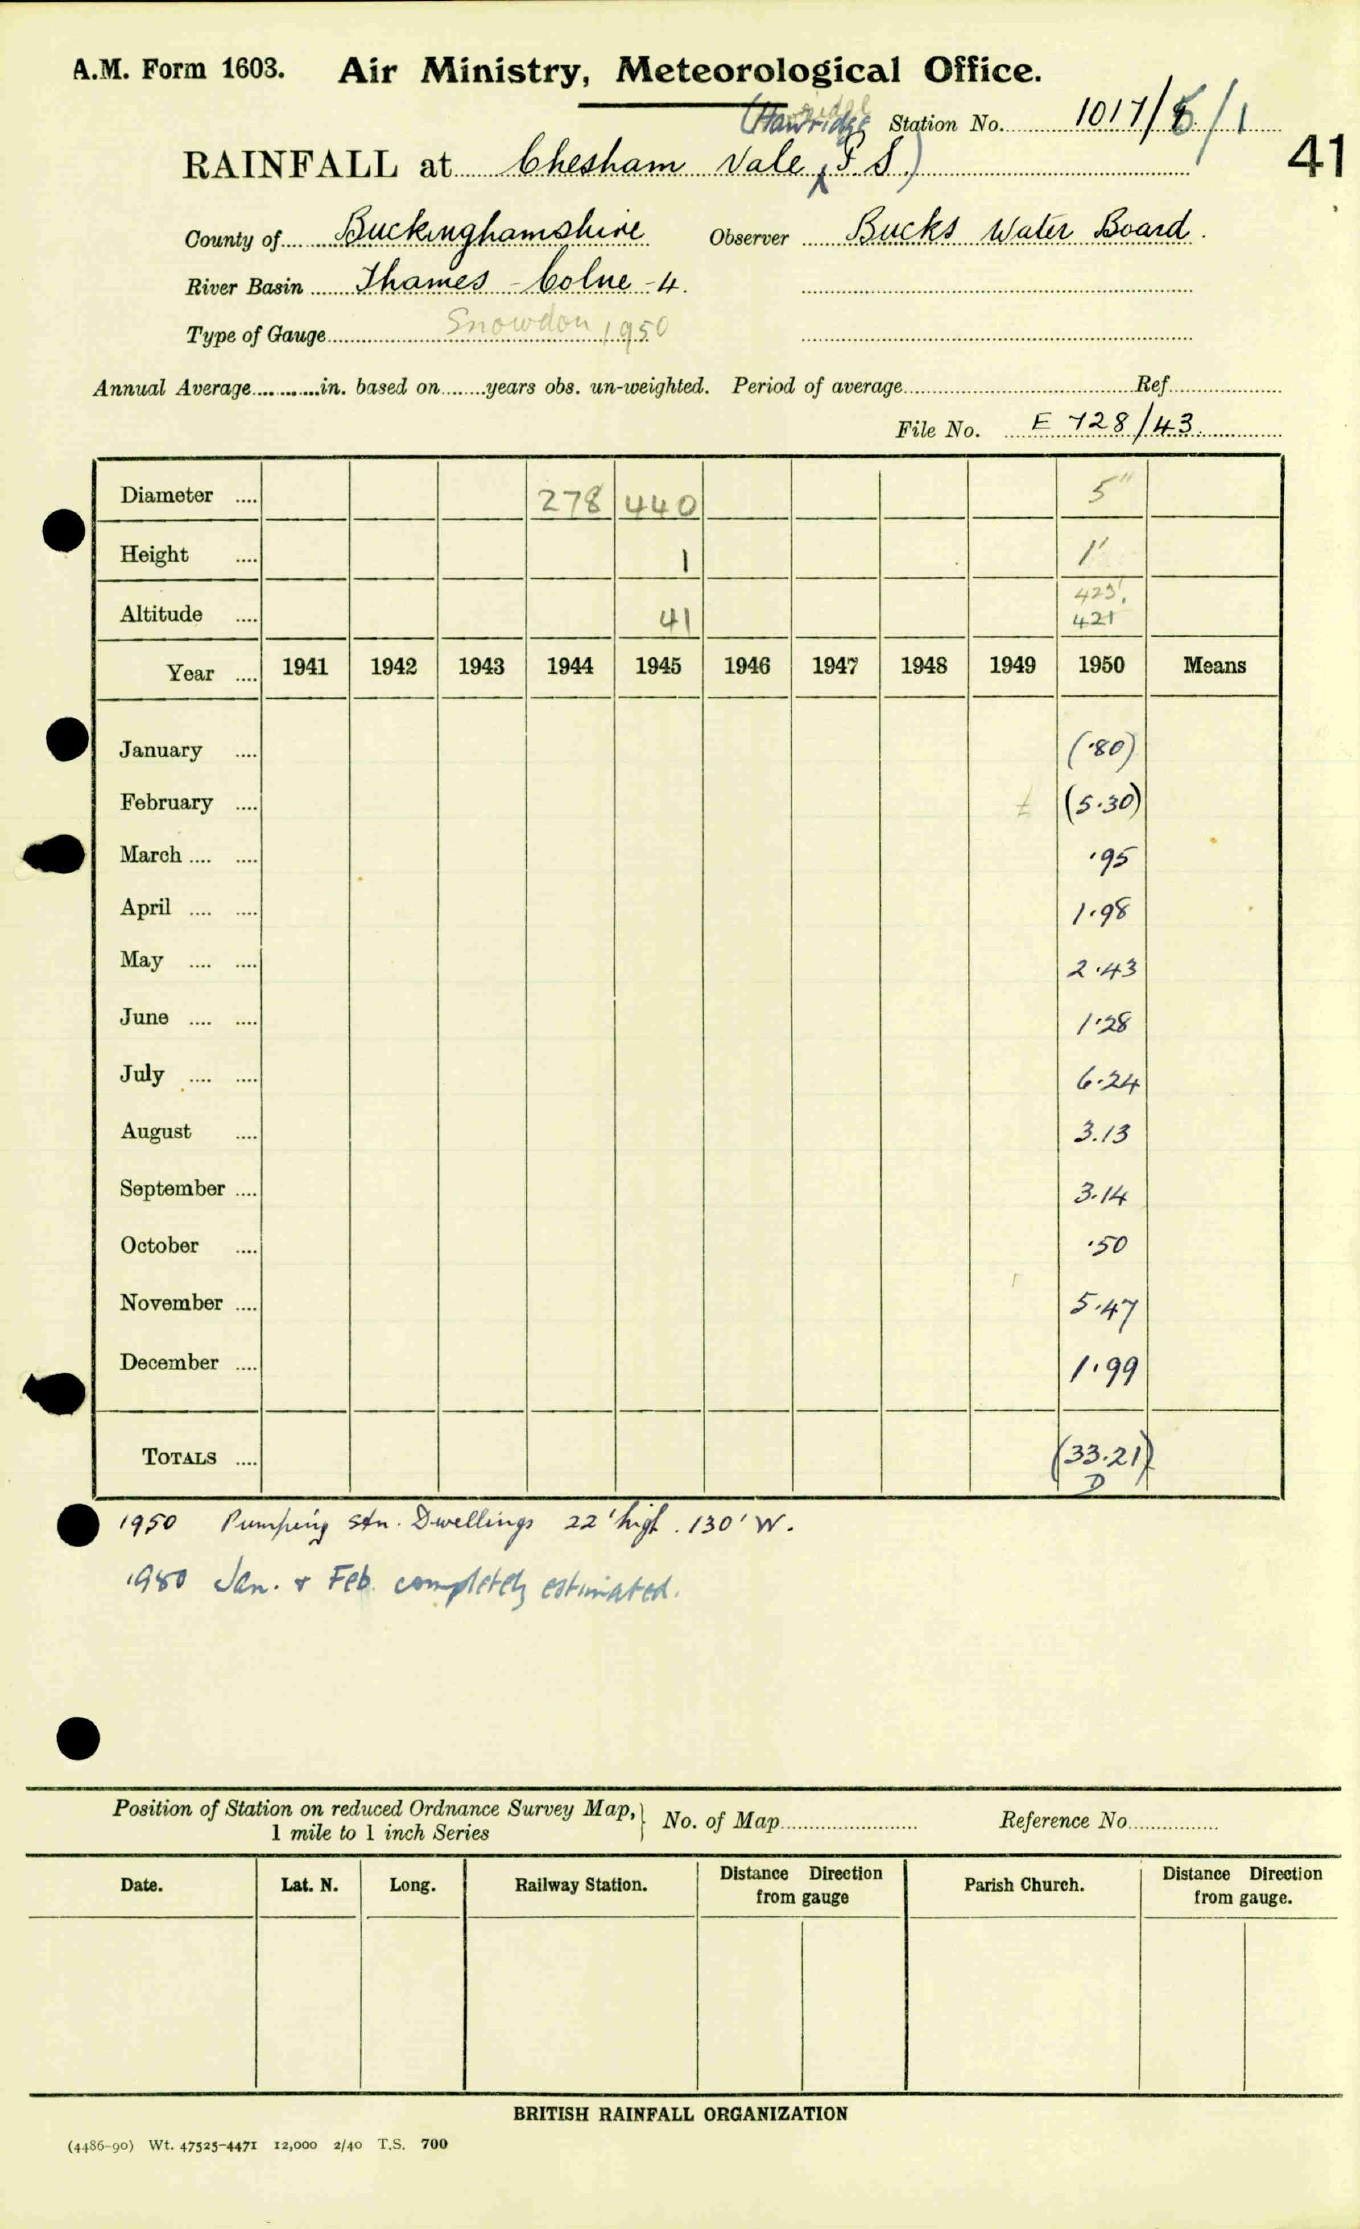 A.M. Form 1603. Air Ministry, Meteorological Office.
(Hawridge Station No. 1017/5/1
41
RAINFALL at Chesham Vale, P.S.)
County of Buckinghamshire Observer Bucks Water Board.
River Basin Thames - Colne - 4.
Type of Gauge Snowdon 1950
Annual Average in. based on years obs. un-weighted. Period of average Ref.
File No. E 728/43
Diameter 278 440 5"
Height 1 1'
423'.
Altitude 41 421
Year 1941 1942 1943 1944 1945 1946 1947 1948 1949 1950 Means
January (·80)
February (5·30)
March ·95
April 1·98
May 2·43
June 1·28
July 6·24
August 3.13
September 3.14
October ·50
November 5·47
December 1·99
TOTALS (33.21)
D
1950 Pumping Stn. Dwellings 22' high. 130' W.
1950 Jan. + Feb. completely estimated.
Position of Station on reduced Ordnance Survey Map, } No. of Map Reference No.
1 mile to 1 inch Series
Date. Lat. N. Long. Railway Station. Distance Direction from gauge Parish Church. Distance Direction from gauge.
BRITISH RAINFALL ORGANIZATION
(4486-90) Wt. 47525-4471 12,000 2/40 T.S. 700